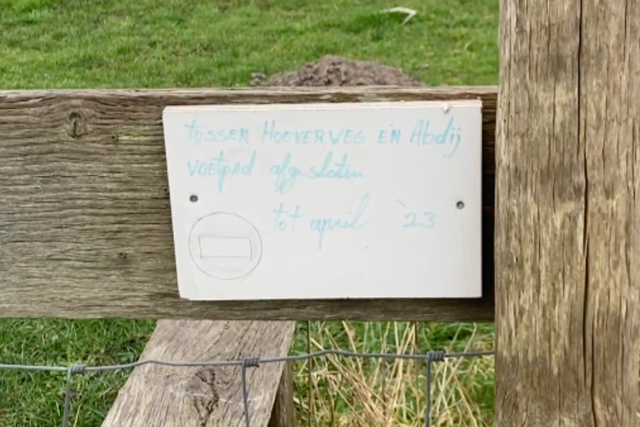 tussen Hoeverweg en Abdij
voetpad afgesloten
tot april '23